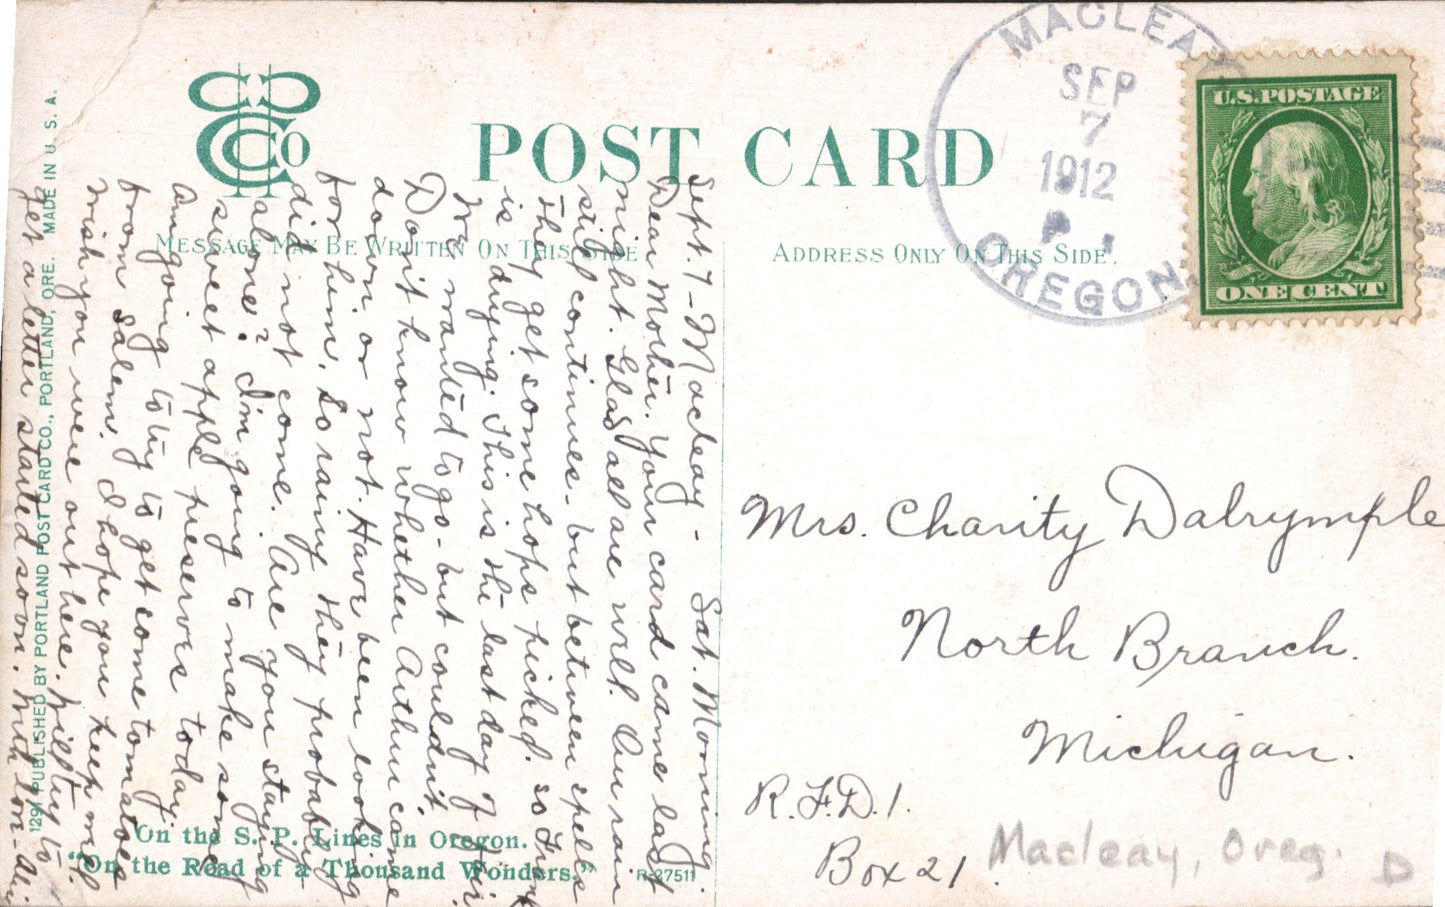 POST CARD
MESSAGE MAY BE WRITTEN ON THIS SIDE.
ADDRESS ONLY ON THIS SIDE.
MACLEAY
SEP
7
1912
P
OREGON.
U.S. POSTAGE
ONE CENT
Sept. 7 - Macleay - Sat. Morning.
Dear Mother. Your card came last
night. Glad all are well. Our rain
still continues - but between spells
they get some hops picked. So Frank
is drying. This is the last day of Fair.
We wanted to go - but couldn't.
Don't know whether Arthur came
down or not. Have been looking
for him. So rainy they probably
did not come. Are you staying
alone? I'm going to make some
sweet apple preserves today.
Am going to try to get some tomatoes
from Salem. I hope you keep well.
Wish you were out here. Will try to
get a letter started soon. With love -
Mrs. Charity Dalrymple
North Branch.
Michigan.
R.F.D. 1.
Box 21.
Macleay, Oreg. D
On the S. P. Lines in Oregon.
"On the Road of a Thousand Wonders."
R-27511
1291 PUBLISHED BY PORTLAND POST CARD CO., PORTLAND, ORE. MADE IN U. S. A.